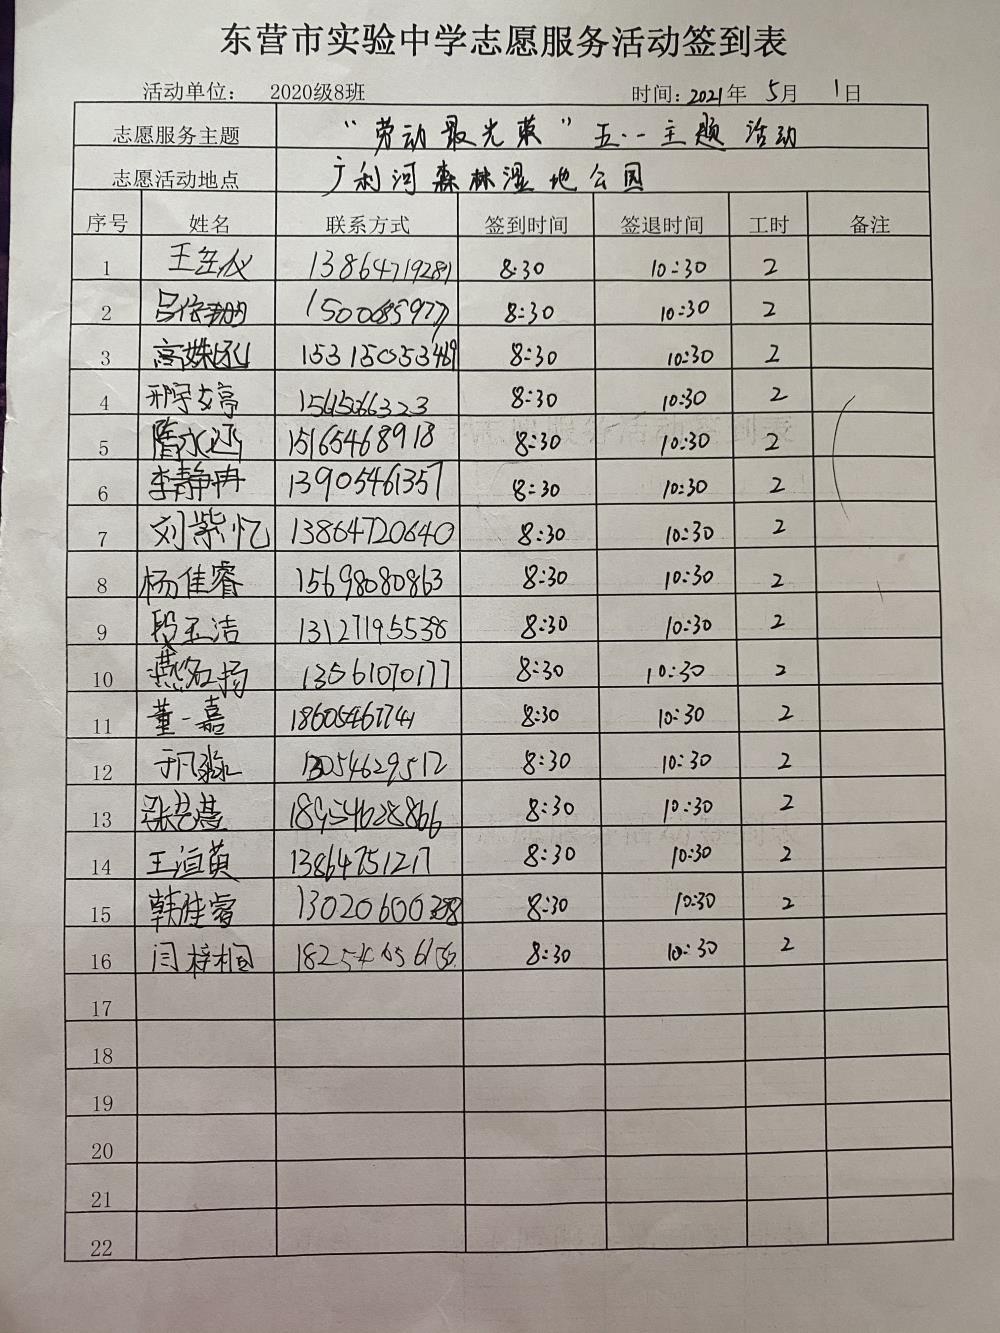 东营市实验中学志愿服务活动签到表
活动单位： 2020级8班 时间：2021年 5月 1日
志愿服务主题 “劳动最光荣”五·一主题 活动
志愿活动地点 广利河森林湿地公园
序号 姓名 联系方式 签到时间 签退时间 工时 备注
1 13864719289 8:30 10:30 2
2 8:30 10:30 2
3 15315053469 8:30 10:30 2
4 8:30 10:30 2
5 隋永涵 15165468918 8:30 10:30 2
6 李静冉 13905461357 8:30 10:30 2
7 刘紫忆 13864720640 8:30 10:30 2
8 杨佳睿 15698080863 8:30 10:30 2
9 段玉洁 13127195538 8:30 10:30 2
10 13561070177 8:30 10:30 2
11 董一嘉 18605467741 8:30 10:30 2
12 13054629512 8:30 10:30 2
13 18954628866 8:30 10:30 2
14 王洹英 13864751217 8:30 10:30 2
15 韩佳睿 8:30 10:30 2
16 闫梓桐 8:30 10:30 2
17
18
19
20
21
22